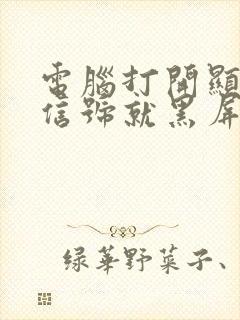 電腦打開顯
信號就黑屏
綠華野菜子、